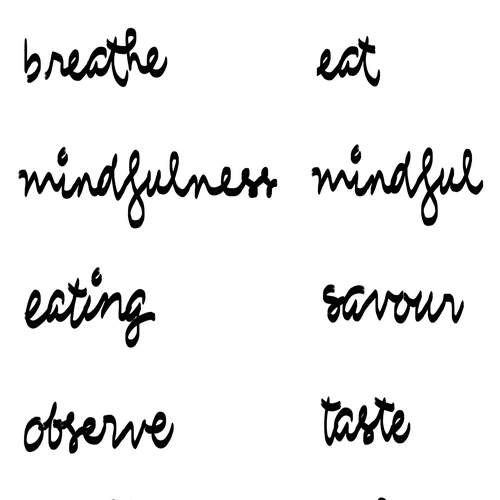 breathe eat
mindfulness mindful
eating savour
observe taste